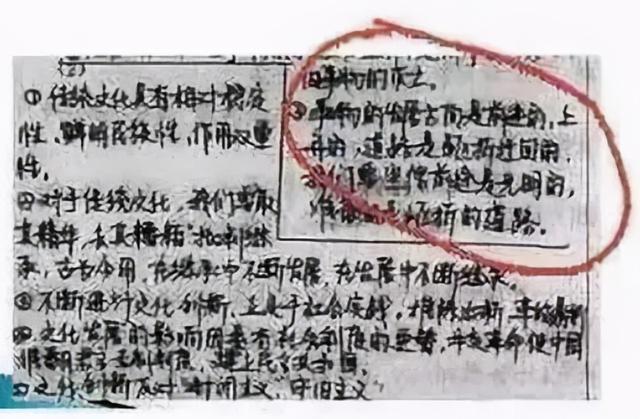 (2)
①传统文化具有相对稳定
性、鲜明民族性,作用双重
性。
②对于传统文化,我们要取
其精华,去其糟粕,批判继
承,古为今用,在继承中不断发展,在发展中不断继承。
③不断进行文化创新,立足于社会实践,推陈出新,革故鼎新
④文化发展的影响因素有社会制度的更替,
⑤文化创新反对"封闭主义""守旧主义"
旧事物的
②事物的发展方向是前进的,上
升的,道路是曲折迂回的,
我们要坚信前途是光明的,
的道路。